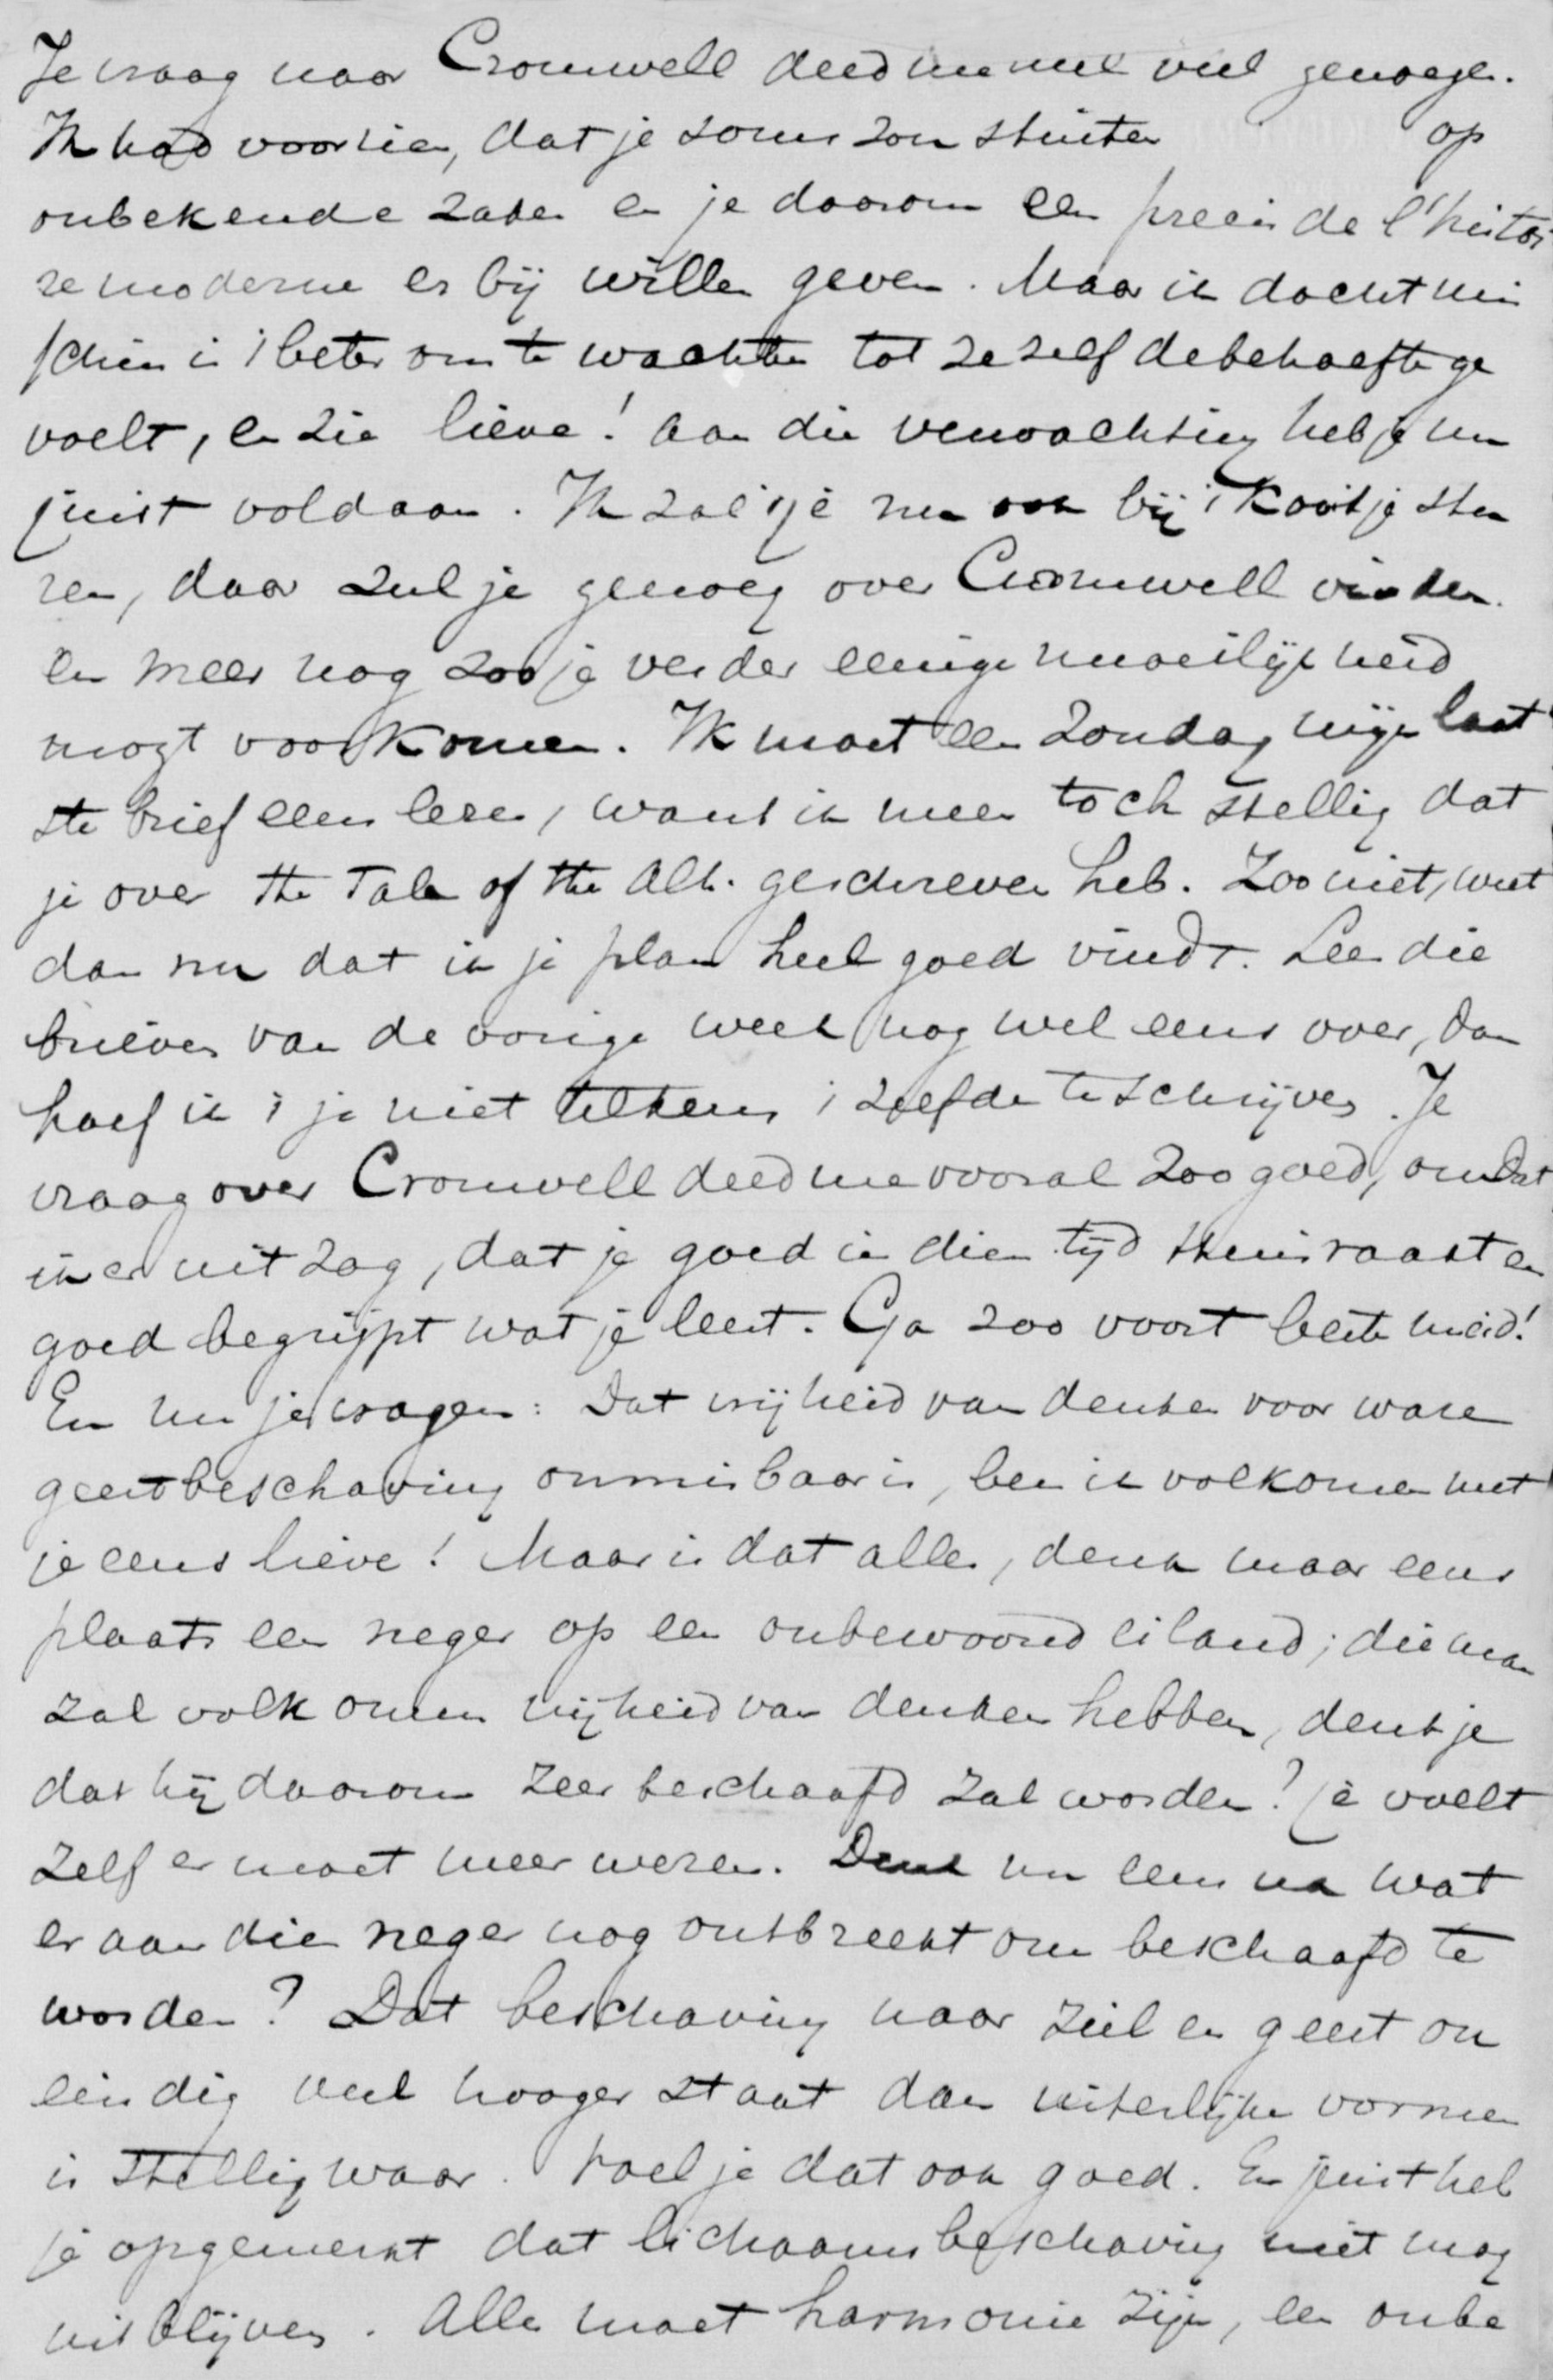 Je vraag naar Cromwell deed me veel genoegen.
Ik had voorzien, dat je soms zou stuiten op
onbekende zaken en je daarom een precis de l'histoi
re moderne er bij willen geven. Maar ik dacht mis
schien is 't beter om te wachten tot ze zelf de behoefte ge
voelt, en zie lieve! aan die verwachting heb je nu
juist voldaan. Ik zal 't je nu ook bij 't Kooitje stu
ren, daar zul je genoeg over Cromwell vinden.
en meer nog zoo je verder eenige moeilijkheid
mogt voorkomen. Ik moet een Zondag mijn laat
ste brief eens lezen, want ik meen toch stellig dat
je over the Tale of the Alh. geschreven heb. Zoo niet, weet
dan nu dat ik je plan heel goed vindt. Lees die
brieven van de vorige week nog wel eens over, dan
hoef ik 't je niet telkens 't zelfde te schrijven. Je
vraag over Cromwell deed me vooral zoo goed, omdat
ik er uit zag, dat je goed in dien tijd thuis raakt en
goed begrijpt wat je leest. Ga zoo voort beste meid!
En nu je vragen: Dat vrijheid van denken voor ware
geestbeschaving onmisbaar is, ben ik volkomen met
je eens lieve! Maar is dat alles, denk maar eens
plaats een neger op een onbewoond eiland; die man
zal volkomen vrijheid van denken hebben, denk je
dat hij daarom zeer beschaafd zal worden? Je voelt
zelf er moet meer wezen. Denk nu eens na wat
er aan die neger nog ontbreekt om beschaafd te
worden? Dat beschaving naar ziel en geest on
eindig veel hooger staat dan uiterlijke vormen
is stellig waar. Voel je dat ook goed. En juist heb
je opgemerkt dat lichaamsbeschaving niet mag
uitblijven. Alles moet harmonie zijn, een onbe